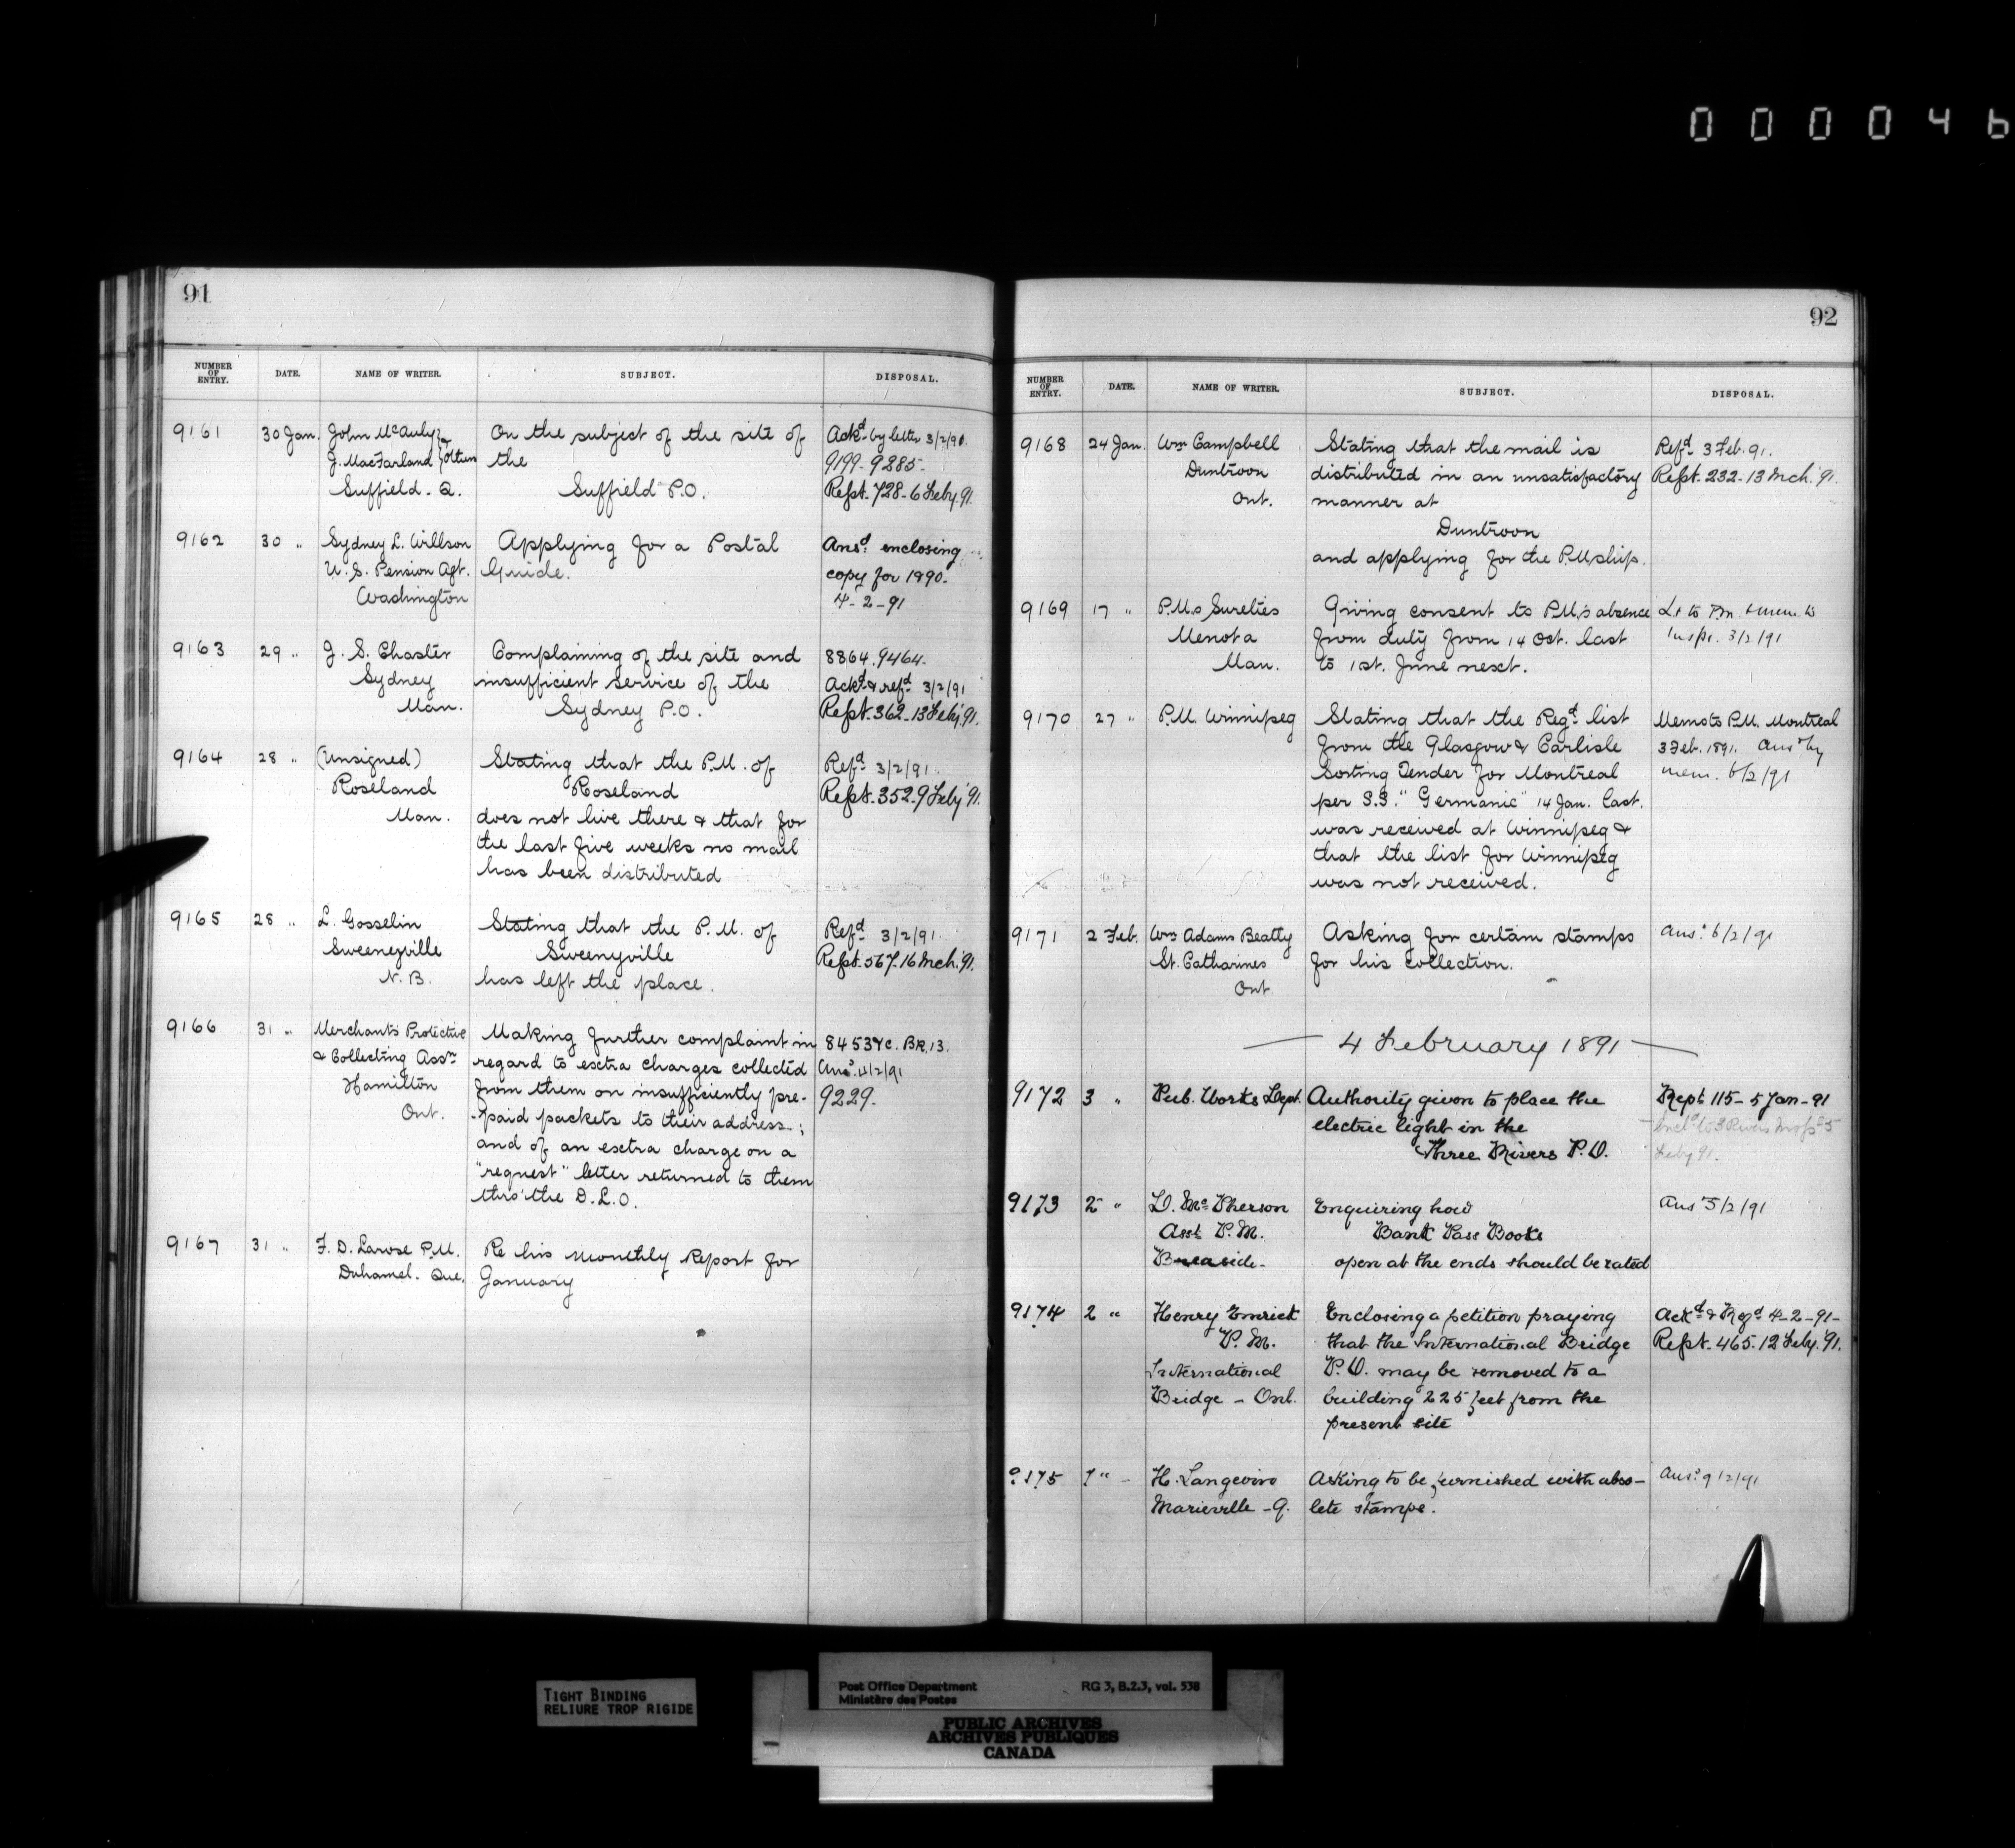 000046
91
NUMBER OF ENTRY. DATE. NAME OF WRITER. SUBJECT. DISPOSAL.
9161 30 Jan. John McAuly & J. MacFarland others Suffield. Q.
On the subject of the site of
the
Suffield P.O.
Ackd. by letter 3/2/91.
9199-9285-
Rept. 728-6 Feby. 91.
9162 30 " Sydney L. Willson
U.S. Pension Agt.
Washington
Applying for a Postal
Guide.
Ansd. enclosing
copy for 1890.
4-2-91
9163 29 " J. S. Chaster
Sydney
Man.
Complaining of the site and
insufficient service of the
Sydney P.O.
8864.9464.
Ackd. & refd. 3/2/91
Rept. 362-13 Feby. 91.
9164 28 " (Unsigned)
Roseland
Man.
Stating that the P.M. of
Roseland
does not live there & that for
the last five weeks no mail
has been distributed
Refd. 3/2/91.
Rept. 352-9 Feby. 91.
9165 28 " L. Gosselin
Sweeneyville
N.B.
Stating that the P.M. of
Sweenyville
has left the place.
Refd. 3/2/91.
Rept. 567-16 Mch. 91.
9166 31 " Merchants Protective
& Collecting Assn.
Hamilton
Ont.
Making further complaint in
regard to extra charges collected
from them on insufficiently pre-
-paid packets to their address;
and of an extra charge on a
"request" letter returned to them
thro' the D.L.O.
8453 BK.13.
Ansd. 4/2/91
9229.
9167 31 " F. D. Larose P.M.
Duhamel. Que.
Re his monthly Report for
January
92
NUMBER OF ENTRY. DATE. NAME OF WRITER. SUBJECT. DISPOSAL.
9168 24 Jan. Wm Campbell
Duntroon
Ont.
Stating that the mail is
distributed in an unsatisfactory
manner at
Duntroon
and applying for the P.M.ship.
Refd. 3 Feb. 91.
Rept. 232-13 Mch. 91.
9169 17 " P.M.s Sureties
Menota
Man.
Giving consent to P.M.'s absence
from duty from 14 Oct. last
to 1st. June next.
Lr to P.M. & mem. to
Inspr. 3/2/91
9170 27 " P.M. Winnipeg
Stating that the Regd. list
from the Glasgow & Carlisle
Sorting Tender for Montreal
per S.S. "Germanic" 14 Jan. last.
was received at Winnipeg &
that the list for Winnipeg
was not received.
Memo to P.M. Montreal
3 Feb. 1891. Ansd by
mem. 6/2/91
9171 2 Feb. Wm Adams Beatty
St. Catharines
Ont.
Asking for certain stamps
for his collection.
Ansd. 6/2/91
— 4 February 1891 —
9172 3 " Pub. Works Dept.
Authority given to place the
electric light in the
Three Rivers P.O.
Rept 115-5 Jan-91
to 3 Rivers 5
Feby 91.
9173 2 " D. McPherson
Asst P.M.
Breaside-
Enquiring how
Bank Pass Books
open at the ends should be rated
Ansd 5/2/91
9174 2 " Henry Emrick
P.M.
International
Bridge - Ont.
Enclosing a petition praying
that the International Bridge
P.O. may be removed to a
building 225 feet from the
present site
Ackd & Refd 4-2-91-
Rept. 465. 12 Feby. 91.
9175 H. Langevin
Marieville -Q.
Asking to be furnished with obso-
lete stamps.
Ansd. 9/2/91
TIGHT BINDING
RELIURE TROP RIGIDE
Post Office Department RG 3, B.2.3, vol. 538
Ministère des Postes
PUBLIC ARCHIVES
ARCHIVES PUBLIQUES
CANADA